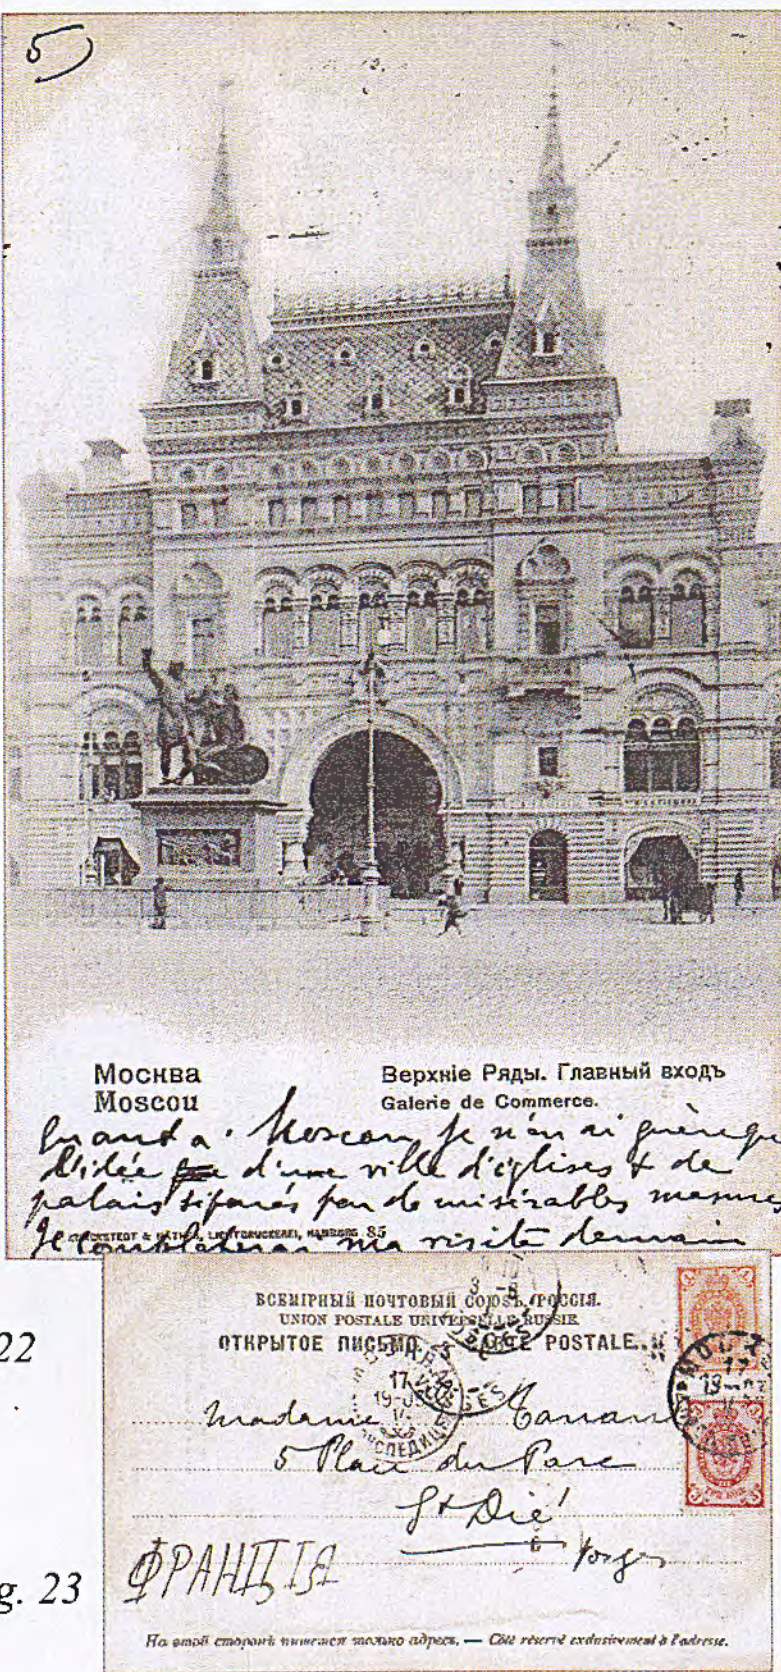 5)
Москва
Moscou
Верхніе Ряды. Главный входъ
Galerie de Commerce.
Quand a Moscou, je n'en ai guère que
l'idée d'une ville d'églises & de
palais séparés par de misérables masures
Je complèterai ma visite demain
& HAMBURG 85
22
ВСЕМІРНЫЙ ПОЧТОВЫЙ СОЮЗЪ. РОССІЯ.
UNION POSTALE UNIVERSELLE. RUSSIE
ОТКРЫТОЕ ПИСЬМО. CARTE POSTALE.
МОСКВА
17
19-03
ЭКСПЕДИЦ
VOSGES
Madame
5 Place du Parc
St Dié
Vosges
ФРАНЦІЯ
g. 23
На этой сторонѣ пишется только адресъ. — Côté réservé exclusivement à l'adresse.